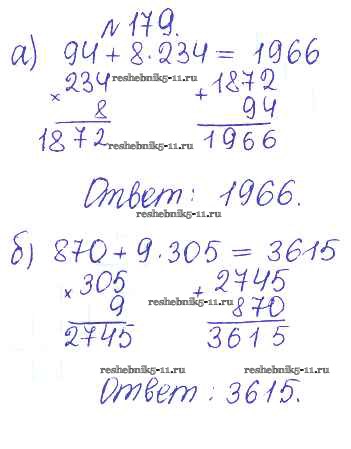 № 179.
а) 94 + 8·234 = 1966
× 234 reshebnik5-11.ru + 1872
8 94
1872 reshebnik5-11.ru 1966
Ответ: 1966.
reshebnik5-11.ru
б) 870 + 9·305 = 3615
× 305 + 2745
9 reshebnik5-11.ru 870
2745 3615
reshebnik5-11.ru reshebnik5-11.ru
Ответ: 3615.